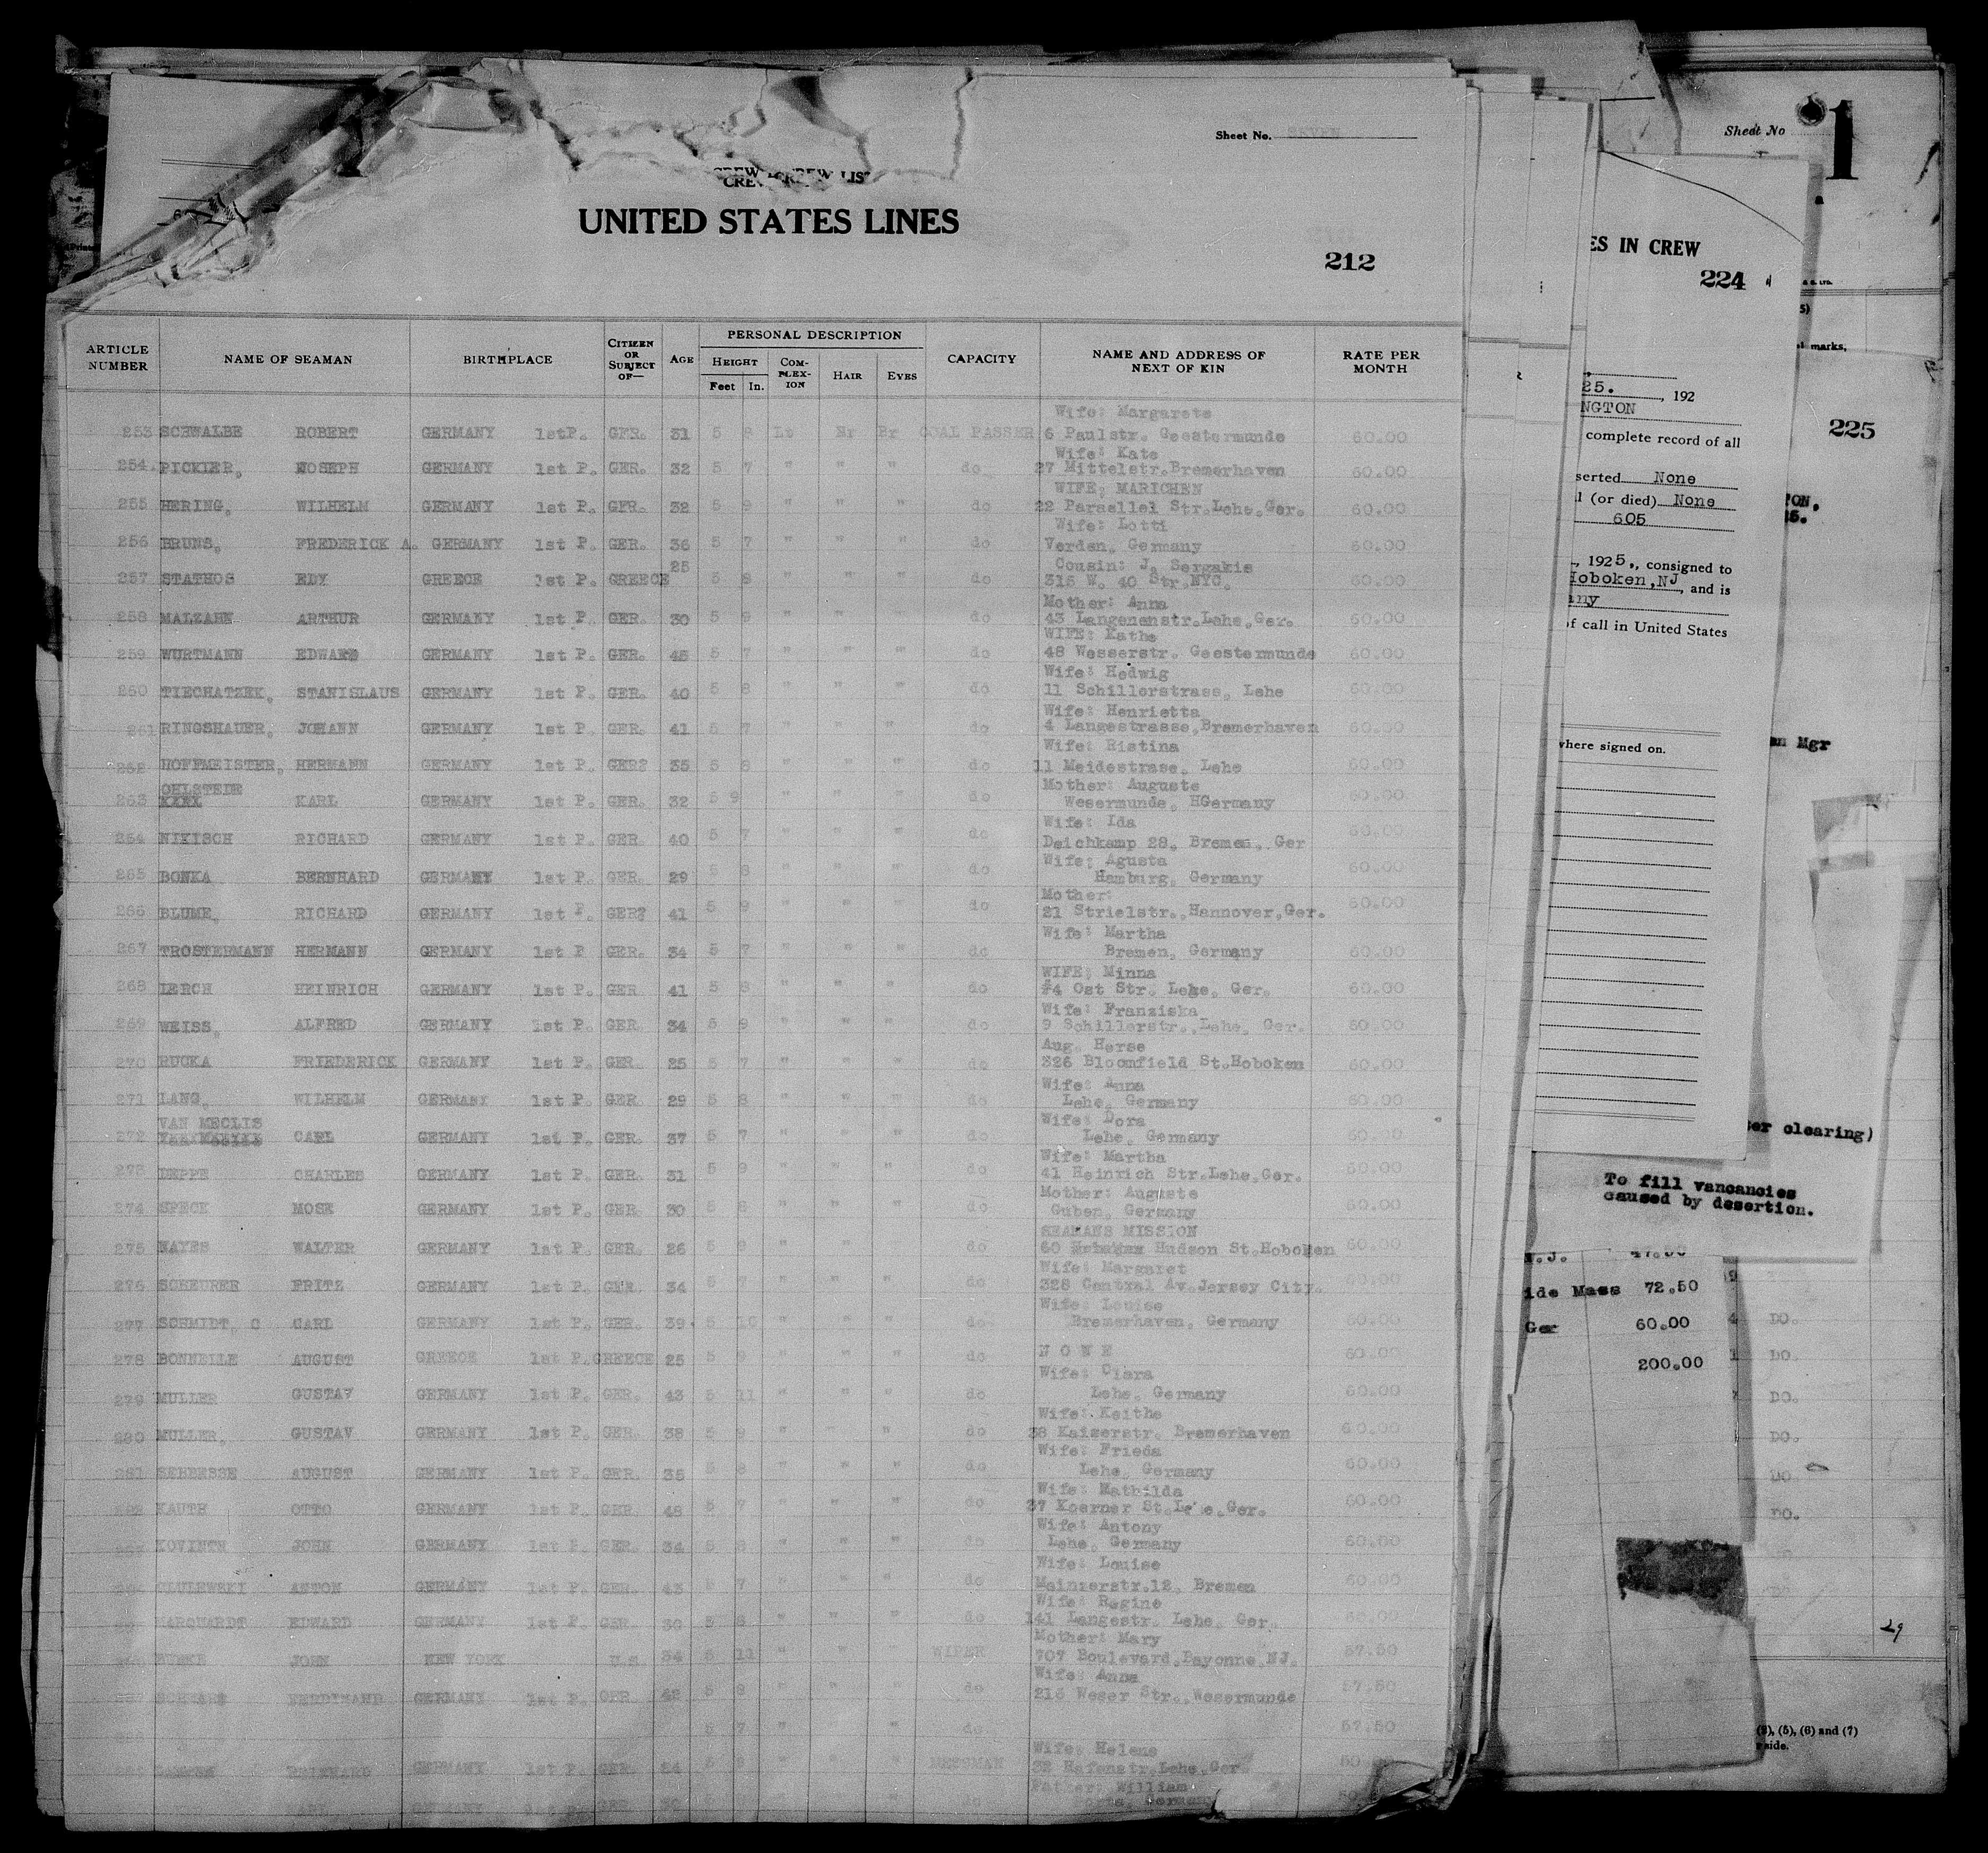 Sheet No. SEVEN
CREW LIST
UNITED STATES LINES
212
ARTICLE NUMBER NAME OF SEAMAN BIRTHPLACE CITIZEN OR SUBJECT OF— AGE PERSONAL DESCRIPTION HEIGHT Feet In. COMPLEXION HAIR EYES CAPACITY NAME AND ADDRESS OF NEXT OF KIN RATE PER MONTH
Wife: Margarete
253 SCHWALBE ROBERT GERMANY 1stP. GER. 31 5 8 Lt Br Br COAL PASSER 6 Paulstr. Geestermunde 60.00
Wife: Kate
254. PICKIER, JOSEPH GERMANY 1st P. GER. 32 5 7 " " " do 27 Mittelstr.Bremerhaven 60.00
WIFE; MARICHEN
255 HERING, WILHELM GERMANY 1st P. GER. 32 5 9 " " " do 22 Paraellel Str.Lehe,Ger. 60.00
Wife: Lotti
256 BRUNS, FREDERICK A. GERMANY 1st P. GER. 36 5 7 " " " do Verden, Germany 60.00
Cousin: J. Sergakis
257 STATHOS EDY GREECE 1st P. GREECE 25 5 8 " " " do 315 W. 40 Str.NYC. 60.00
Mother: Anna
258 MALZAHN ARTHUR GERMANY 1st P. GER. 30 5 9 " " " do 43 Langenenstr.Lehe,Ger. 60.00
WIFE: Kathe
259 WURTMANN EDWARD GERMANY 1st P. GER. 45 5 7 " " " do 48 Wesserstr. Geestermunde 60.00
Wife: Hedwig
260 TIECHATZEK, STANISLAUS GERMANY 1st P. GER. 40 5 8 " " " do 11 Schillerstrass, Lehe 60.00
Wife: Henrietta
261 RINGSHAUER, JOHANN GERMANY 1st P. GER. 41 5 7 " " " do 4 Langestrasse,Bremerhaven 60.00
Wife: Ristina
262 HOFFMEISTER, HERMANN GERMANY 1st P. GER? 35 5 8 " " " do 11 Meidestrase, Lehe 60.00
OHLSTEDE Mother: Auguste
263 KARL GERMANY 1st P. GER. 32 5 9 " " " do Wesermunde, HGermany 60.00
Wife: Ida
264 NIKISCH RICHARD GERMANY 1st P. GER. 40 5 7 " " " do Deichkamp 28, Bremen, Ger 60.00
Wife: Agusta
265 BONKA BERNHARD GERMANY 1st P. GER. 29 5 8 " " " do Hamburg, Germany 60.00
Mother:
266 BLUME, RICHARD GERMANY 1st P. GER? 41 5 9 " " " do 21 Strielstr.,Hannover,Ger. 60.00
Wife: Martha
267 TROSTERMANN HERMANN GERMANY 1st P GER. 34 5 7 " " " do Bremen, Germany 60.00
WIFE; Minna
268 LERCH HEINRICH GERMANY 1st P. GER 41 5 8 " " " do 24 Ost Str. Lehe, Ger. 60.00
Wife: Franziska
269 WEISS, ALFRED GERMANY 1st P. GER. 34 5 9 " " " do 9 Schillerstr.,Lehe, Ger. 60.00
Aug. Herse
270 RUCKA FRIEDERICK GERMANY 1st P. GER. 25 5 7 " " " do 326 Bloomfield St.Hoboken 60.00
Wife: Anna
271 LANG, WILHELM GERMANY 1st P. GER. 29 5 8 " " " do Lehe, Germany 60.00
VAN MECLIS Wife: Dora
272 CARL GERMANY 1st P. GER. 37 5 7 " " " do Lehe, Germany 60.00
Wife: Martha
273 DEPPE CHARLES GERMANY 1st P. GER. 31 5 9 " " " do 41 Heinrich Str.Lehe,Ger. 60.00
Mother: Auguste
274 SPECK MOSE GERMANY 1st P. GER. 30 5 8 " " " do Guben, Germany 60.00
SEAMANS MISSION
275 HAYES WALTER GERMANY 1st P. GER. 26 5 8 " " " do 60 Hudson St.Hoboken 60.00
Wife: Margaret
276 SCHEURER FRITZ GERMANY 1st P. GER. 34 5 7 " " " do 328 Central Av.Jersey City. 60.00
Wife: Louise
277 SCHMIDT, C CARL GERMANY 1st P. GER. 39 5 10 " " " do Bremerhaven, Germany 60.00
278 BONNEILE AUGUST GREECE 1st P. GREECE 25 5 9 " " " do N O N E 60.00
Wife: Clara
279 MULLER GUSTAV GERMANY 1st P. GER. 43 5 11 " " " do Lehe, Germany 60.00
Wife: Keithe
280 MULLER, GUSTAV GERMANY 1st P. GER. 38 5 9 " " " do 38 Kaizerstr. Bremerhaven 60.00
Wife: Frieda
281 SEBBESSE AUGUST GERMANY 1st P. GER. 35 5 8 " " " do Lehe, Germany 60.00
Wife: Mathilda
282 KAUTH OTTO GERMANY 1st P. GER. 48 5 7 " " " do 37 Koerner St.Lehe,Ger. 60.00
Wife: Antony
KOVINTH JOHN GERMANY 1st P. GER. 34 5 8 " " " do Lehe, Germany 60.00
Wife: Louise
OLULEWSKI ANTON GERMANY 1st P. GER. 43 5 7 " " " do Mainzerstr.12, Bremen 60.00
Wife: Regine
MARQUARDT EDWARD GERMANY 1st P. GER. 30 5 8 " " " do 141 Langestr. Lehe, Ger. 60.00
Mother: Mary
BURKE JOHN NEW YORK U.S. 34 5 11 " " " WIPER 707 Boulevard,Bayonne,NJ. 57.50
Wife: Anna
FERDINAND GERMANY 1st P. GER 42 5 8 " " " do 215 Weser Str.,Wesermunde 57.50
288 5 7 " " do 57.50
Wife: Helene
REINHARD GERMANY 1st P. GER 24 5 8 " " " MESSMAN 32 Hafenstr,Lehe,Ger
Father: William
GERMANY GER 30 do Germany
Sheet No 1
ES IN CREW
224
& S. LTD.
marks,
25. , 192
NGTON
225
complete record of all
serted None
l (or died) None
605
TON,
25.
, 1925., consigned to
Hoboken,NJ , and is
any
of call in United States
an Mgr
where signed on.
er clearing)
To fill vancancies
caused by desertion.
N.J. 47.50
ide Mass 72.50
Ger 60.00 DO.
200.00 DO.
DO.
DO.
DO.
DO.
29
(3), (5), (6) and (7)
side.